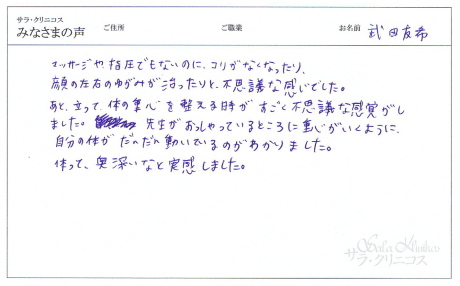 サラ・クリニコス
みなさまの声 ご住所 ご職業 お名前 武田友希
マッサージや、指圧でもないのに、コリがなくなったり、
顔の左右のゆがみが治ったりと、不思議な感じでした。
あと、立って、体の重心を整える時がすごく不思議な感覚がし
ました。先生がおっしゃっているところに重心がいくように、
自分の体がだんだん動いているのがわかりました。
体って、奥深いなと実感しました。
Sala Klinikos
サラ・クリニコス